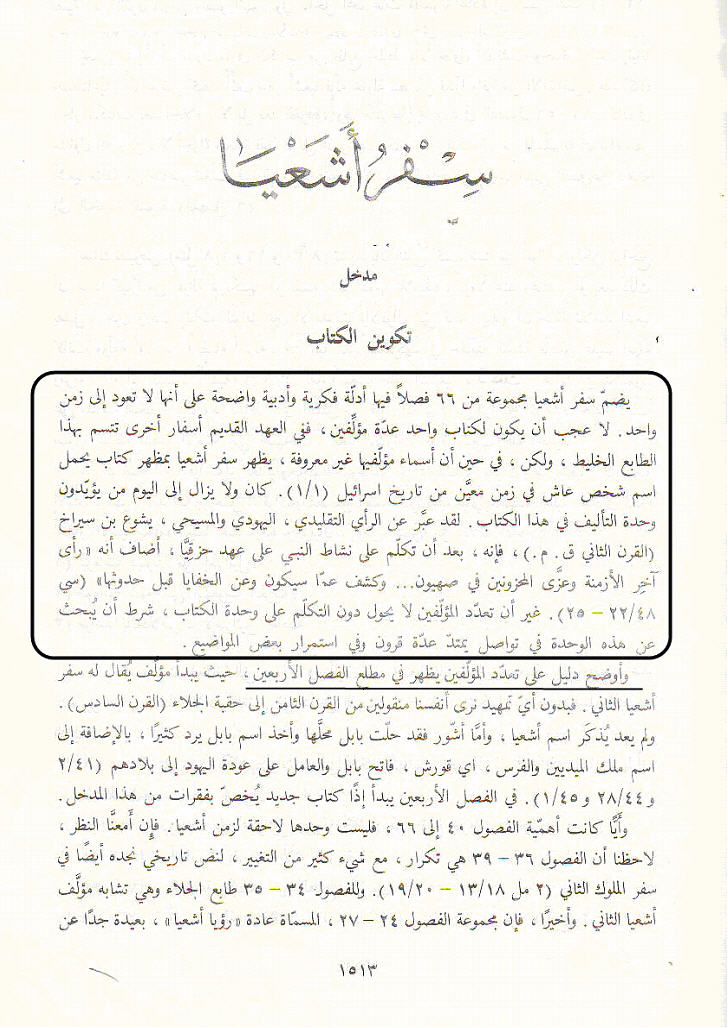 سِفْرُ أَشَعْيَا
مدخل
تكوين الكتاب
يضمّ سفر أشعيا مجموعة من ٦٦ فصلاً فيها أدلّة فكرية وأدبية واضحة على أنها لا تعود إلى زمن
واحد. لا عجب أن يكون لكتاب واحد عدّة مؤلِّفين ، ففي العهد القديم أسفار أخرى تتسم بهذا
الطابع الخليط ، ولكن ، في حين أن أسماء مؤلّفيها غير معروفة ، يظهر سفر أشعيا بمظهر كتاب يحمل
اسم شخص عاش في زمن معيَّن من تاريخ اسرائيل (١/١). كان ولا يزال إلى اليوم من يؤيّدون
وحدة التأليف في هذا الكتاب. لقد عبَّر عن الرأي التقليدي ، اليهودي والمسيحي ، يشوع بن سيراخ
(القرن الثاني ق. م.) ، فإنه ، بعد أن تكلّم على نشاط النبي على عهد حزقيًّا ، أضاف أنه «رأى
آخِر الأزمنة وعزَّى المحزونين في صهيون... وكشف عمّا سيكون وعن الخفايا قبل حدوثها» (سي
٢٢/٤٨ – ٢٥). غير أن تعدّد المؤلّفين لا يحول دون التكلّم على وحدة الكتاب ، شرط أن يُبحث
عن هذه الوحدة في تواصل يمتدّ عدّة قرون وفي استمرار بعض المواضيع .
وأوضح دليل على تعدّد المؤلّفين يظهر في مطلع الفصل الأربعين ، حيث يبدأ مؤلَّف يُقال له سفر
أشعيا الثاني . فبدون أيّ تمهيد نرى أنفسنا منقولين من القرن الثامن إلى حقبة الجلاء (القرن السادس).
ولم يعد يُذكَر اسم أشعيا ، وأمَّا أشّور فقد حلّت بابل محلّها وأخذ اسم بابل يرد كثيرًا ، بالإضافة إلى
اسم ملك الميديين والفرس ، اي قورش ، فاتح بابل والعامل على عودة اليهود إلى بلادهم (٢/٤١
و ٢٨/٤٤ و ١/٤٥). في الفصل الأربعين يبدأ إذًا كتاب جديد يُخصّ بفقرات من هذا المدخل.
وأيًّا كانت أهمّية الفصول ٤٠ إلى ٦٦ ، فليست وحدها لاحقة لزمن أشعيا. فإن أمعنَّا النظر ،
لاحظنا أن الفصول ٣٦ – ٣٩ هي تكرار ، مع شيء كثير من التغيير ، لنص تاريخي نجده أيضًا في
سفر الملوك الثاني (٢ مل ١٣/١٨ – ١٩/٢٠). وللفصول ٣٤ – ٣٥ طابع الجلاء وهي تشابه مؤلَّف
أشعيا الثاني . وأخيرًا ، فإن مجموعة الفصول ٢٤ – ٢٧ ، المسمّاة عادة «رؤيا أشعيا» ، بعيدة جدًا عن
١٥١٣